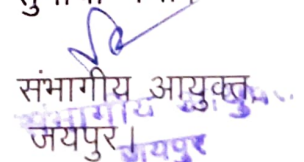 संभागीय आयुक्त
जयपुर।
संभागीय
जयपुर